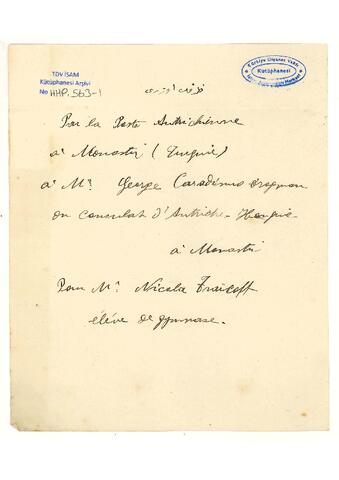 TDV İSAM
Kütüphanesi Arşivi
No HHP.563-1
Türkiye Diyanet Vakfı
Kütüphanesi
Par la Poste Autrichienne
à Monastir (Turquie)
à Mr. George Caradimus drogman
au consulat d'Autriche-Hongrie
à Monastir
Pour Mr. Nicola Traicoff
élève de gymnase.